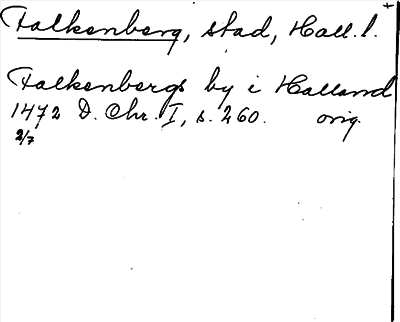 Falkenberg, stad, Hall. l.
Falkenbergs by i Halland
1472 D. Chr. I, s. 260. orig.
2/7